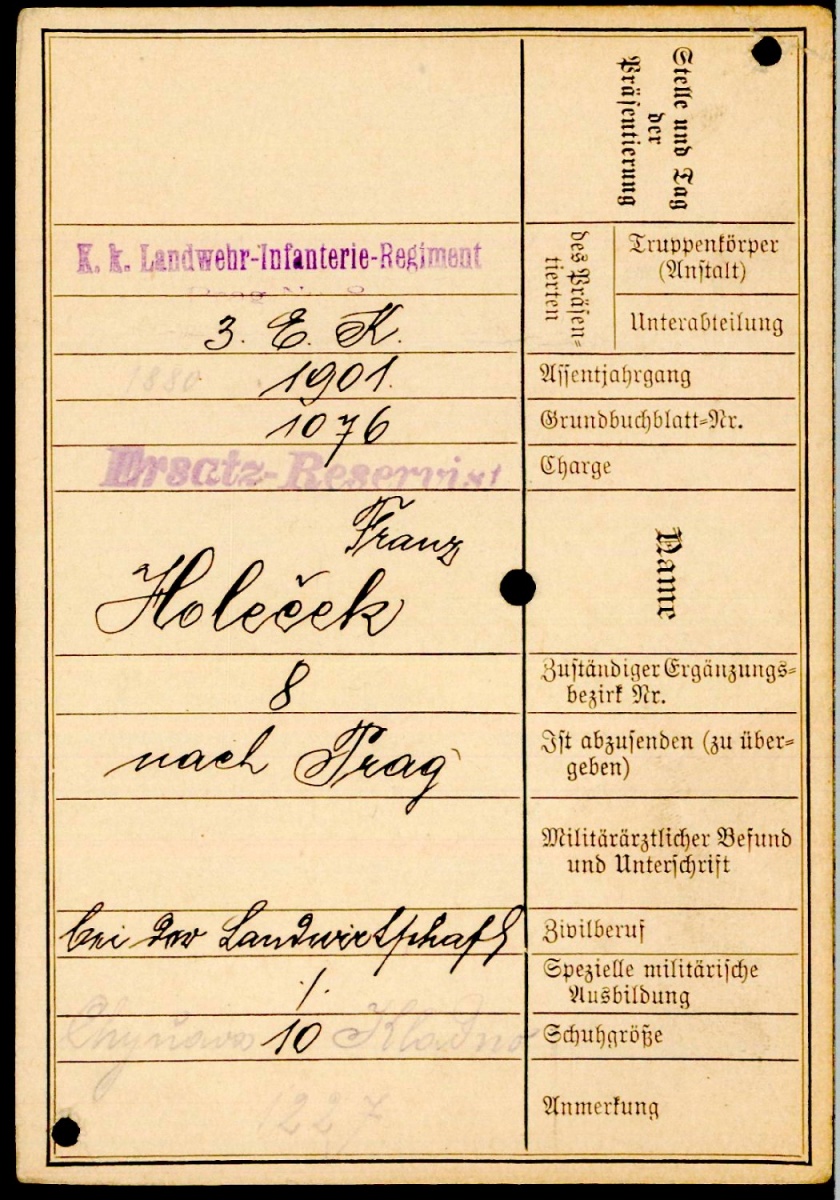 Stelle und Tag
der
Präsentierung
K. k. Landwehr-Infanterie-Regiment
des Präsen-
tierten
Truppenkörper
(Anstalt)
3. E. K.
Unterabteilung
1880
1901.
Assentjahrgang
1076
Grundbuchblatt-Nr.
Ersatz-Reservist
Charge
Franz
Holeček
Name
8
Zuständiger Ergänzungs-
bezirk Nr.
nach Prag
Ist abzusenden (zu über-
geben)
Militärärztlicher Befund
und Unterschrift
bei der Landwirtschaft
Zivilberuf
./.
Spezielle militärische
Ausbildung
10
Kladno
Schuhgröße
1227
Anmerkung